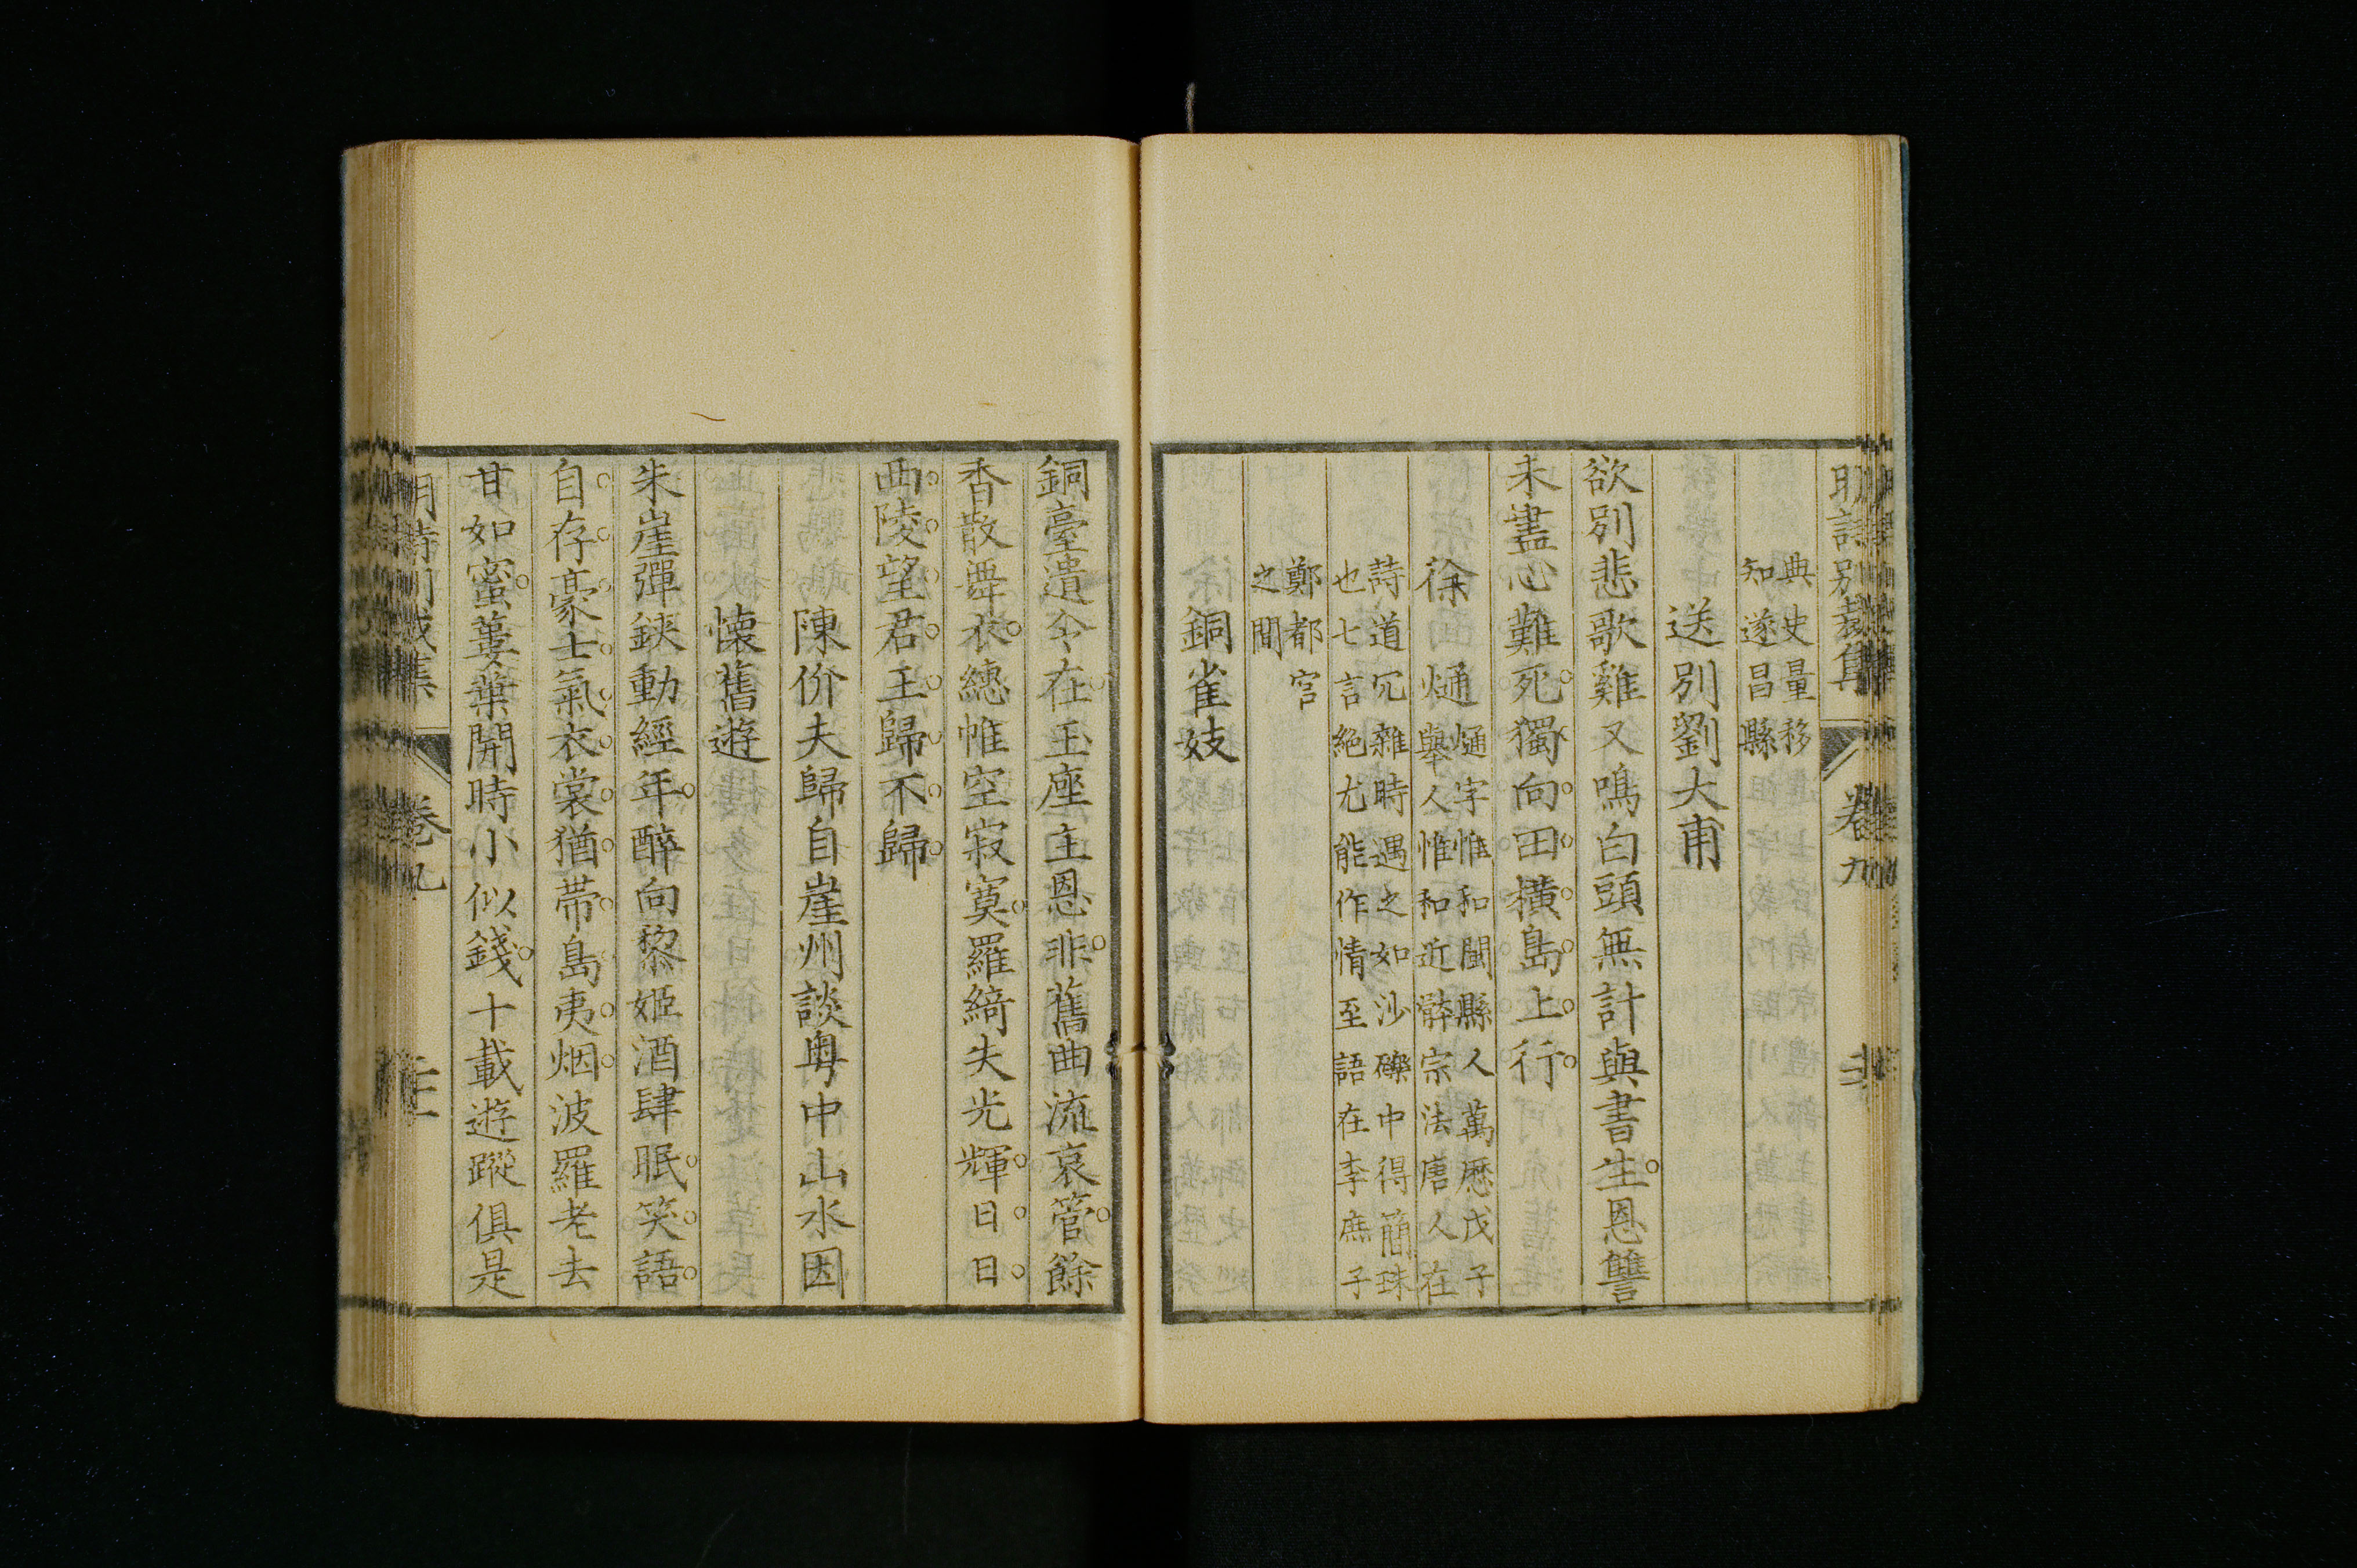 明詩別裁集 卷九
典史量移
知遂昌縣
送別劉大甫
欲別悲歌雞又鳴白頭無計與書生恩讐
未盡心難死獨向田橫島上行
徐𤊹
𤊹字惟和閩縣人萬厯戊子
舉人惟和近體宗法唐人在
詩道冗雜時遇之如沙礫中得簡珠
也七言絕尤能作情至語在李庶子
鄭都官
之間
銅雀妓
銅臺遺令在玉座主恩非舊曲流哀管餘
香散舞衣繐帷空寂寞羅綺失光輝日日
西陵望君王歸不歸
陳价夫歸自崖州談粤中山水因
懷舊遊
朱崖彈鋏動經年醉向黎姬酒肆眠笑語
自存豪士氣衣裳猶帶島夷烟波羅老去
甘如蜜蔞葉開時小似錢十載遊蹤俱是
明詩別裁集 卷九